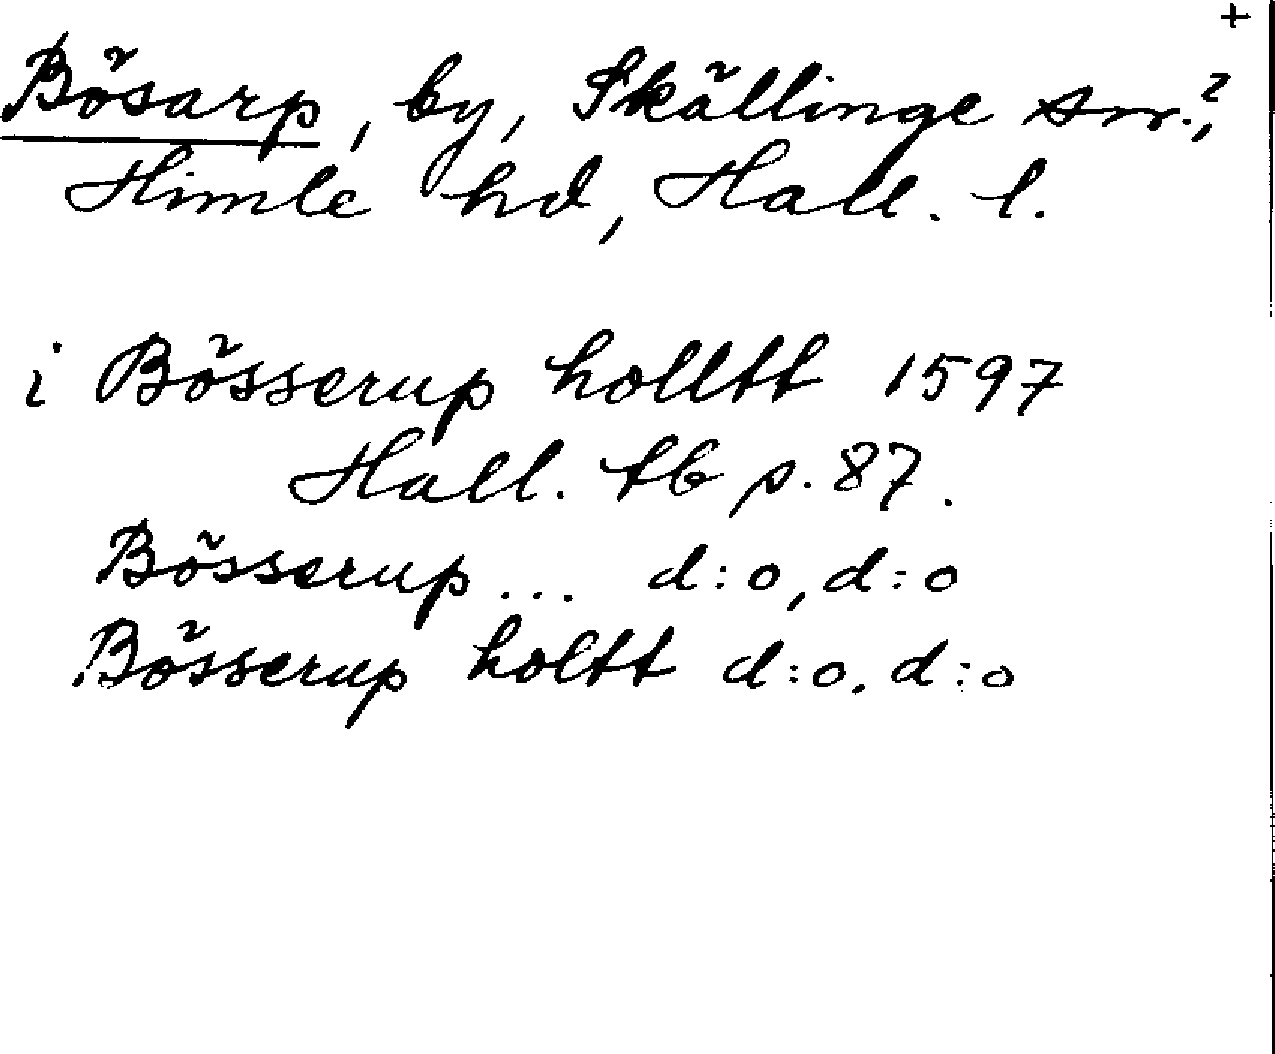 +
Bösarp, by, Skällinge sn.?,
Himle hd, Hall. l.
i Bösserup holltt 1597
Hall. tb p. 87.
Bösserup ... d:o, d:o
Bösserup holtt d:o. d:o